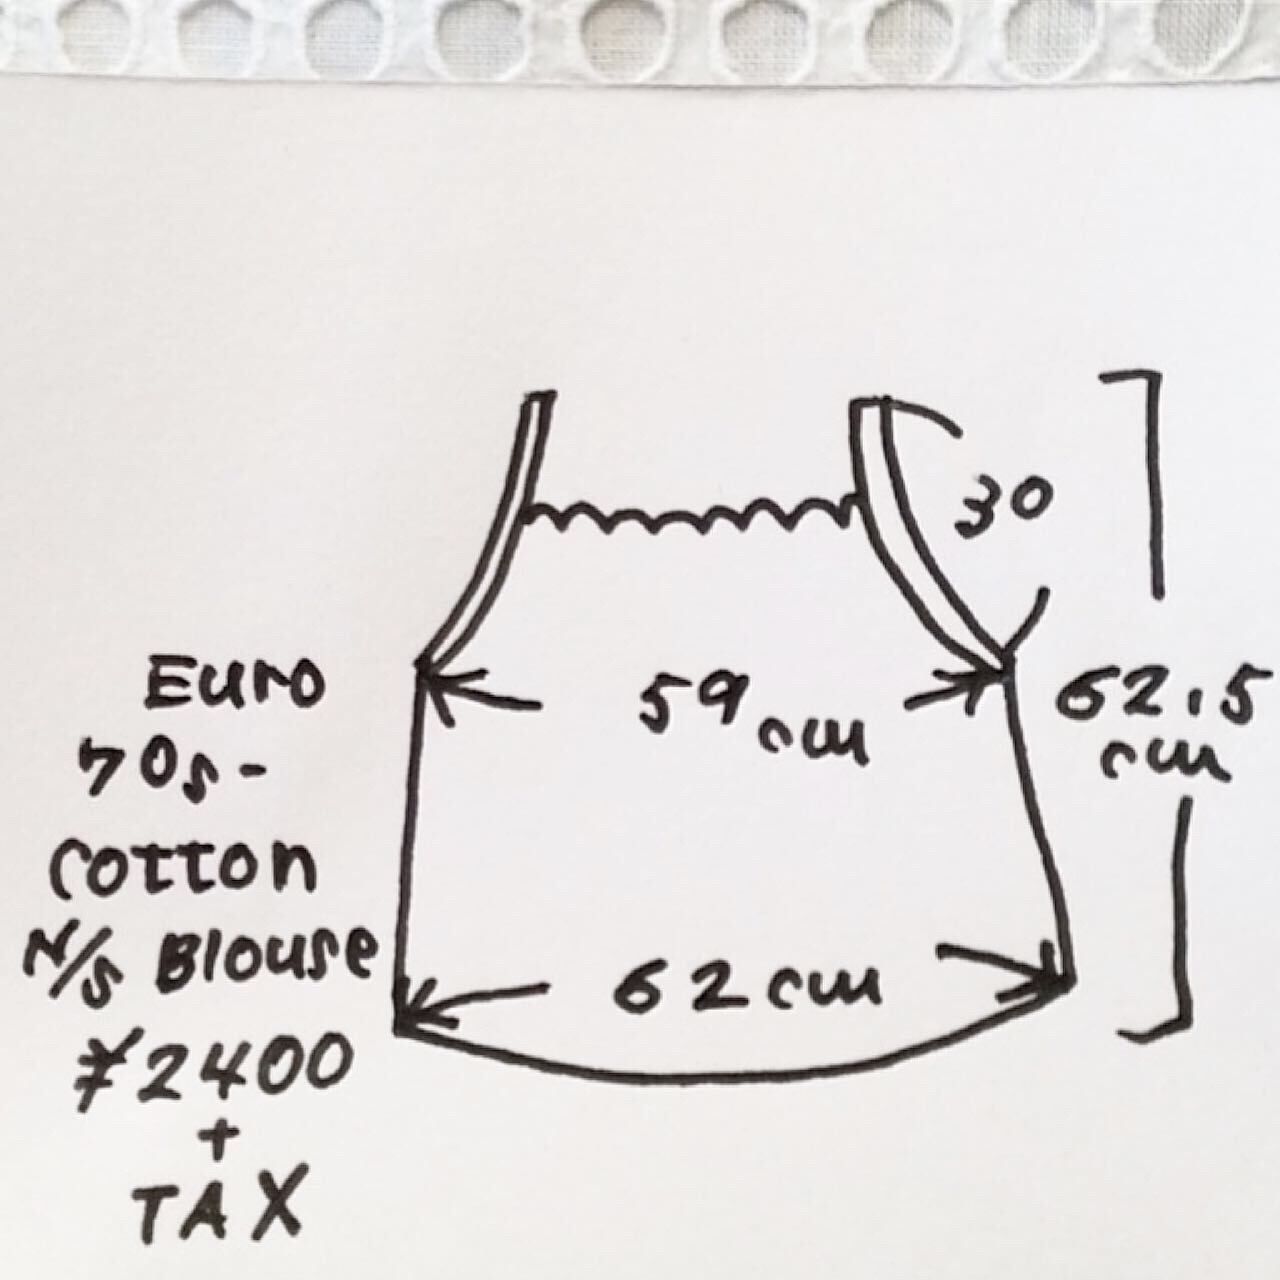 30
59 cm
62.5
cm
62 cm
Euro
70s-
cotton
N/S Blouse
¥2400
+
TAX